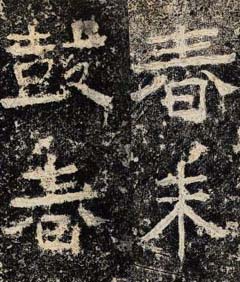 春未
鼓春